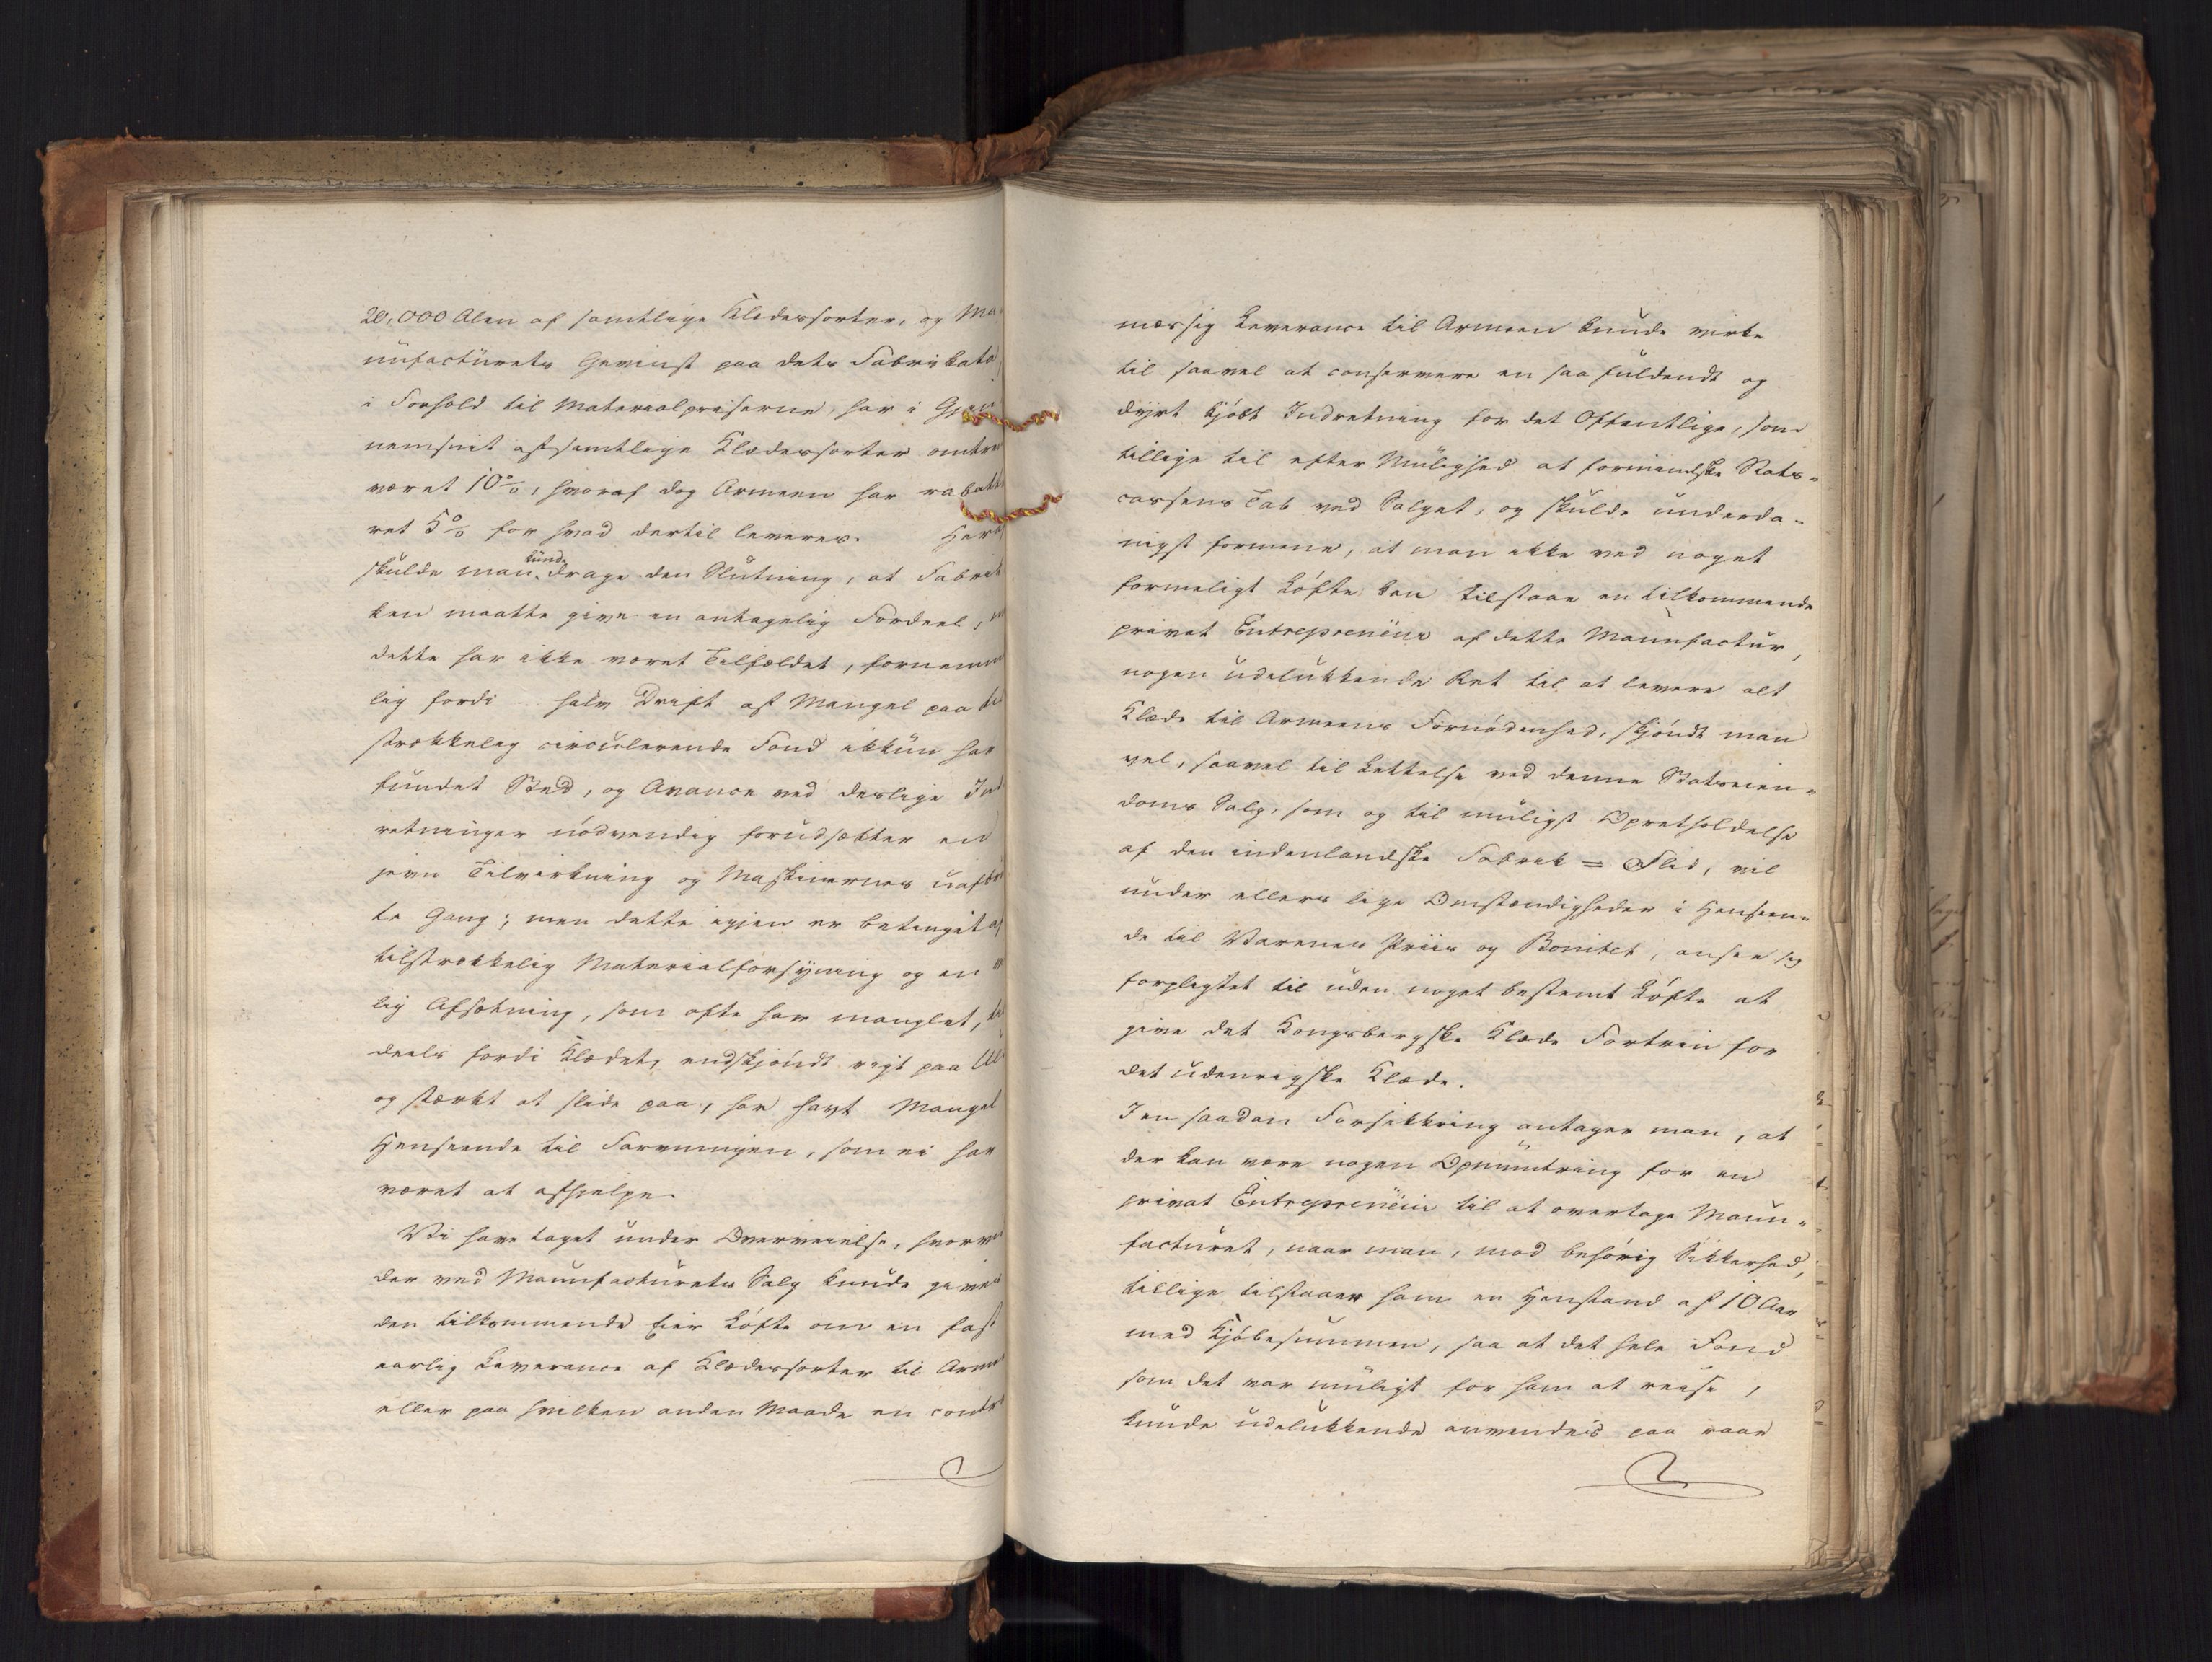 20,000 Alen af samtlige Klædessorter, og Ma-
nufacturets Gevinst paa dets Fabrikata
i Forhold til Materialpriserne, har i Gjen
nemsnit af samtlige Klædessorter omtre
været 10%, hvoraf dog Armeen har rabatte
ret 5% for hvad dertil leveres. Her
skulde man kunde drage den Slutning, at Fabrik
ken maatte give en antagelig Fordeel,
dette har ikke været Tilfældet, fornemme
lig fordi halv Drift af Mangel paa til
strækkelig circulerende Fond ikkun har
fundet Sted, og Avance ved deslige Ind
retninger nödvendig forudsætter en
jevn Tilvirkning og Maskinernes uafbr
te Gang; men dette igjen er betinget af
tilstrækkelig Materialforsyning og en
lig Afsætning, som ofte har manglet,
deels fordi Klædet, endskjöndt rigt paa Uld
og stærkt at slide paa, har havt Mangel
Henseende til Farvningen, som ei har
været at afhjelpe.
Vi have taget under Overveielse, hvorvi
der ved Manufacturets Salg kunde gives
den tilkommende Eier Löfte om en fast
aarlig Leverance af Klædessorter til Arme
eller paa hvilken anden Maade en contr
mæssig Leverance til Armeen kunde virke
til saavel at conservere en saa fuldendt og
dyrt kjöbt Indretning for det Offentlige, som
tillige til efter Mulighed at formindske Stats-
cassens Tab ved Salget, og skulde underda-
nigst formene, at man ikke ved noget
formeligt Löfte kan tilstaae en tilkommende
privat Entrepreneur af dette Manufactur,
nogen udelukkende Ret til at levere alt
Klæde til Armeens Fornödenhed, skjöndt man
vel, saavel til Lettelse ved denne Statseien-
doms Salg, som og til muligst Opretholdelse
af den indenlandske Fabrik = Flid, vil
under ellers lige Omstændigheder i Henseen-
de til Varenes Priis og Bonitet, ansee sig
forpligtet til uden noget bestemt Löfte at
give det Kongsbergske Klæde Fortrin for
det udenrigske Klæde.
I en saadan Forsikkring antager man, at
der kan være nogen Opmuntring for en
privat Entrepreneur til at overtage Manu-
facturet, naar man, mod behörig Sikkerhed,
tillige tilstaaer ham en Henstand af 10 Aar
med Kjöbesummen, saa at det hele Fond
som det var muligt for ham at reise,
kunde udelukkende anvendes paa raae